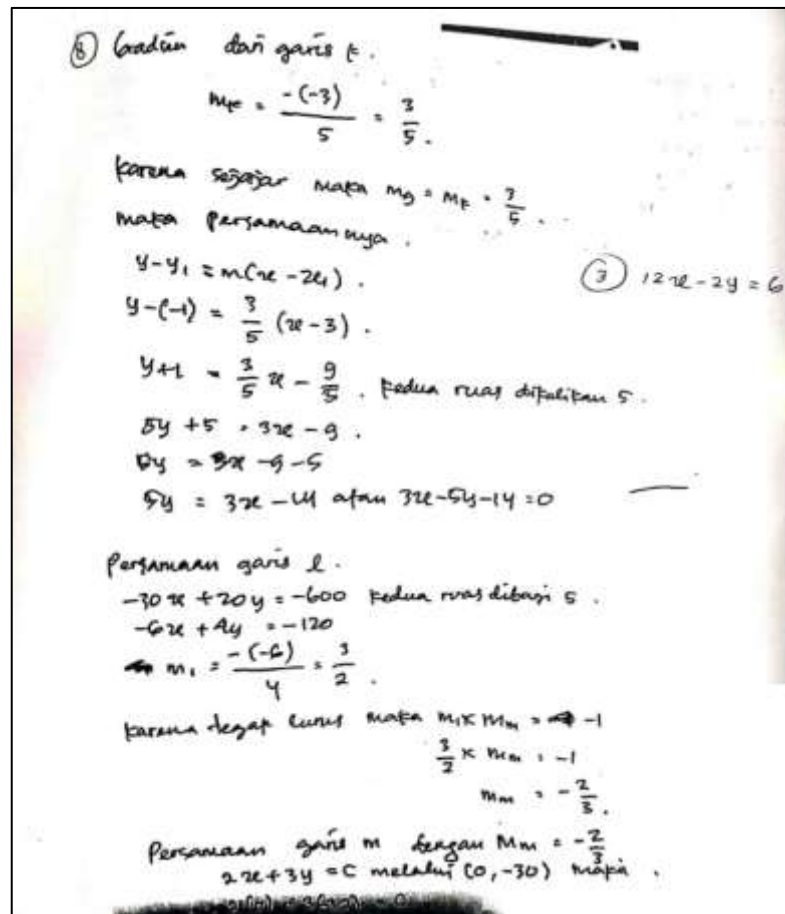 ⑧ Gradien dari garis k.
mk = -(-3)/5 = 3/5.
karena sejajar maka mg = mk = 3/5.
maka persamaannya.
y-y₁ = m(x-x₁).
③ 12x-2y = 6
y-(-1) = 3/5 (x-3).
y+1 = 3/5 x - 9/5. kedua ruas dikalikan 5.
5y + 5 = 3x - 9.
5y = 3x - 9 - 5
5y = 3x - 14 atau 3x-5y-14 = 0
Persamaan garis l.
-30x + 20y = -600 kedua ruas dibagi 5.
-6x + 4y = -120
m₁ = -(-6)/4 = 3/2.
karena tegak lurus maka m₁ x mm = -1
3/2 x mm = -1
mm = -2/3.
Persamaan garis m dengan Mm = -2/3
2x+3y = C melalui (0,-30) maka.